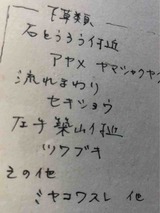 下草類
石とうろう付近
アヤメ ヤマシャクヤク
流れまわり
セキショウ
左手築山付近
ツワブキ
その他
ミヤコワスレ 他